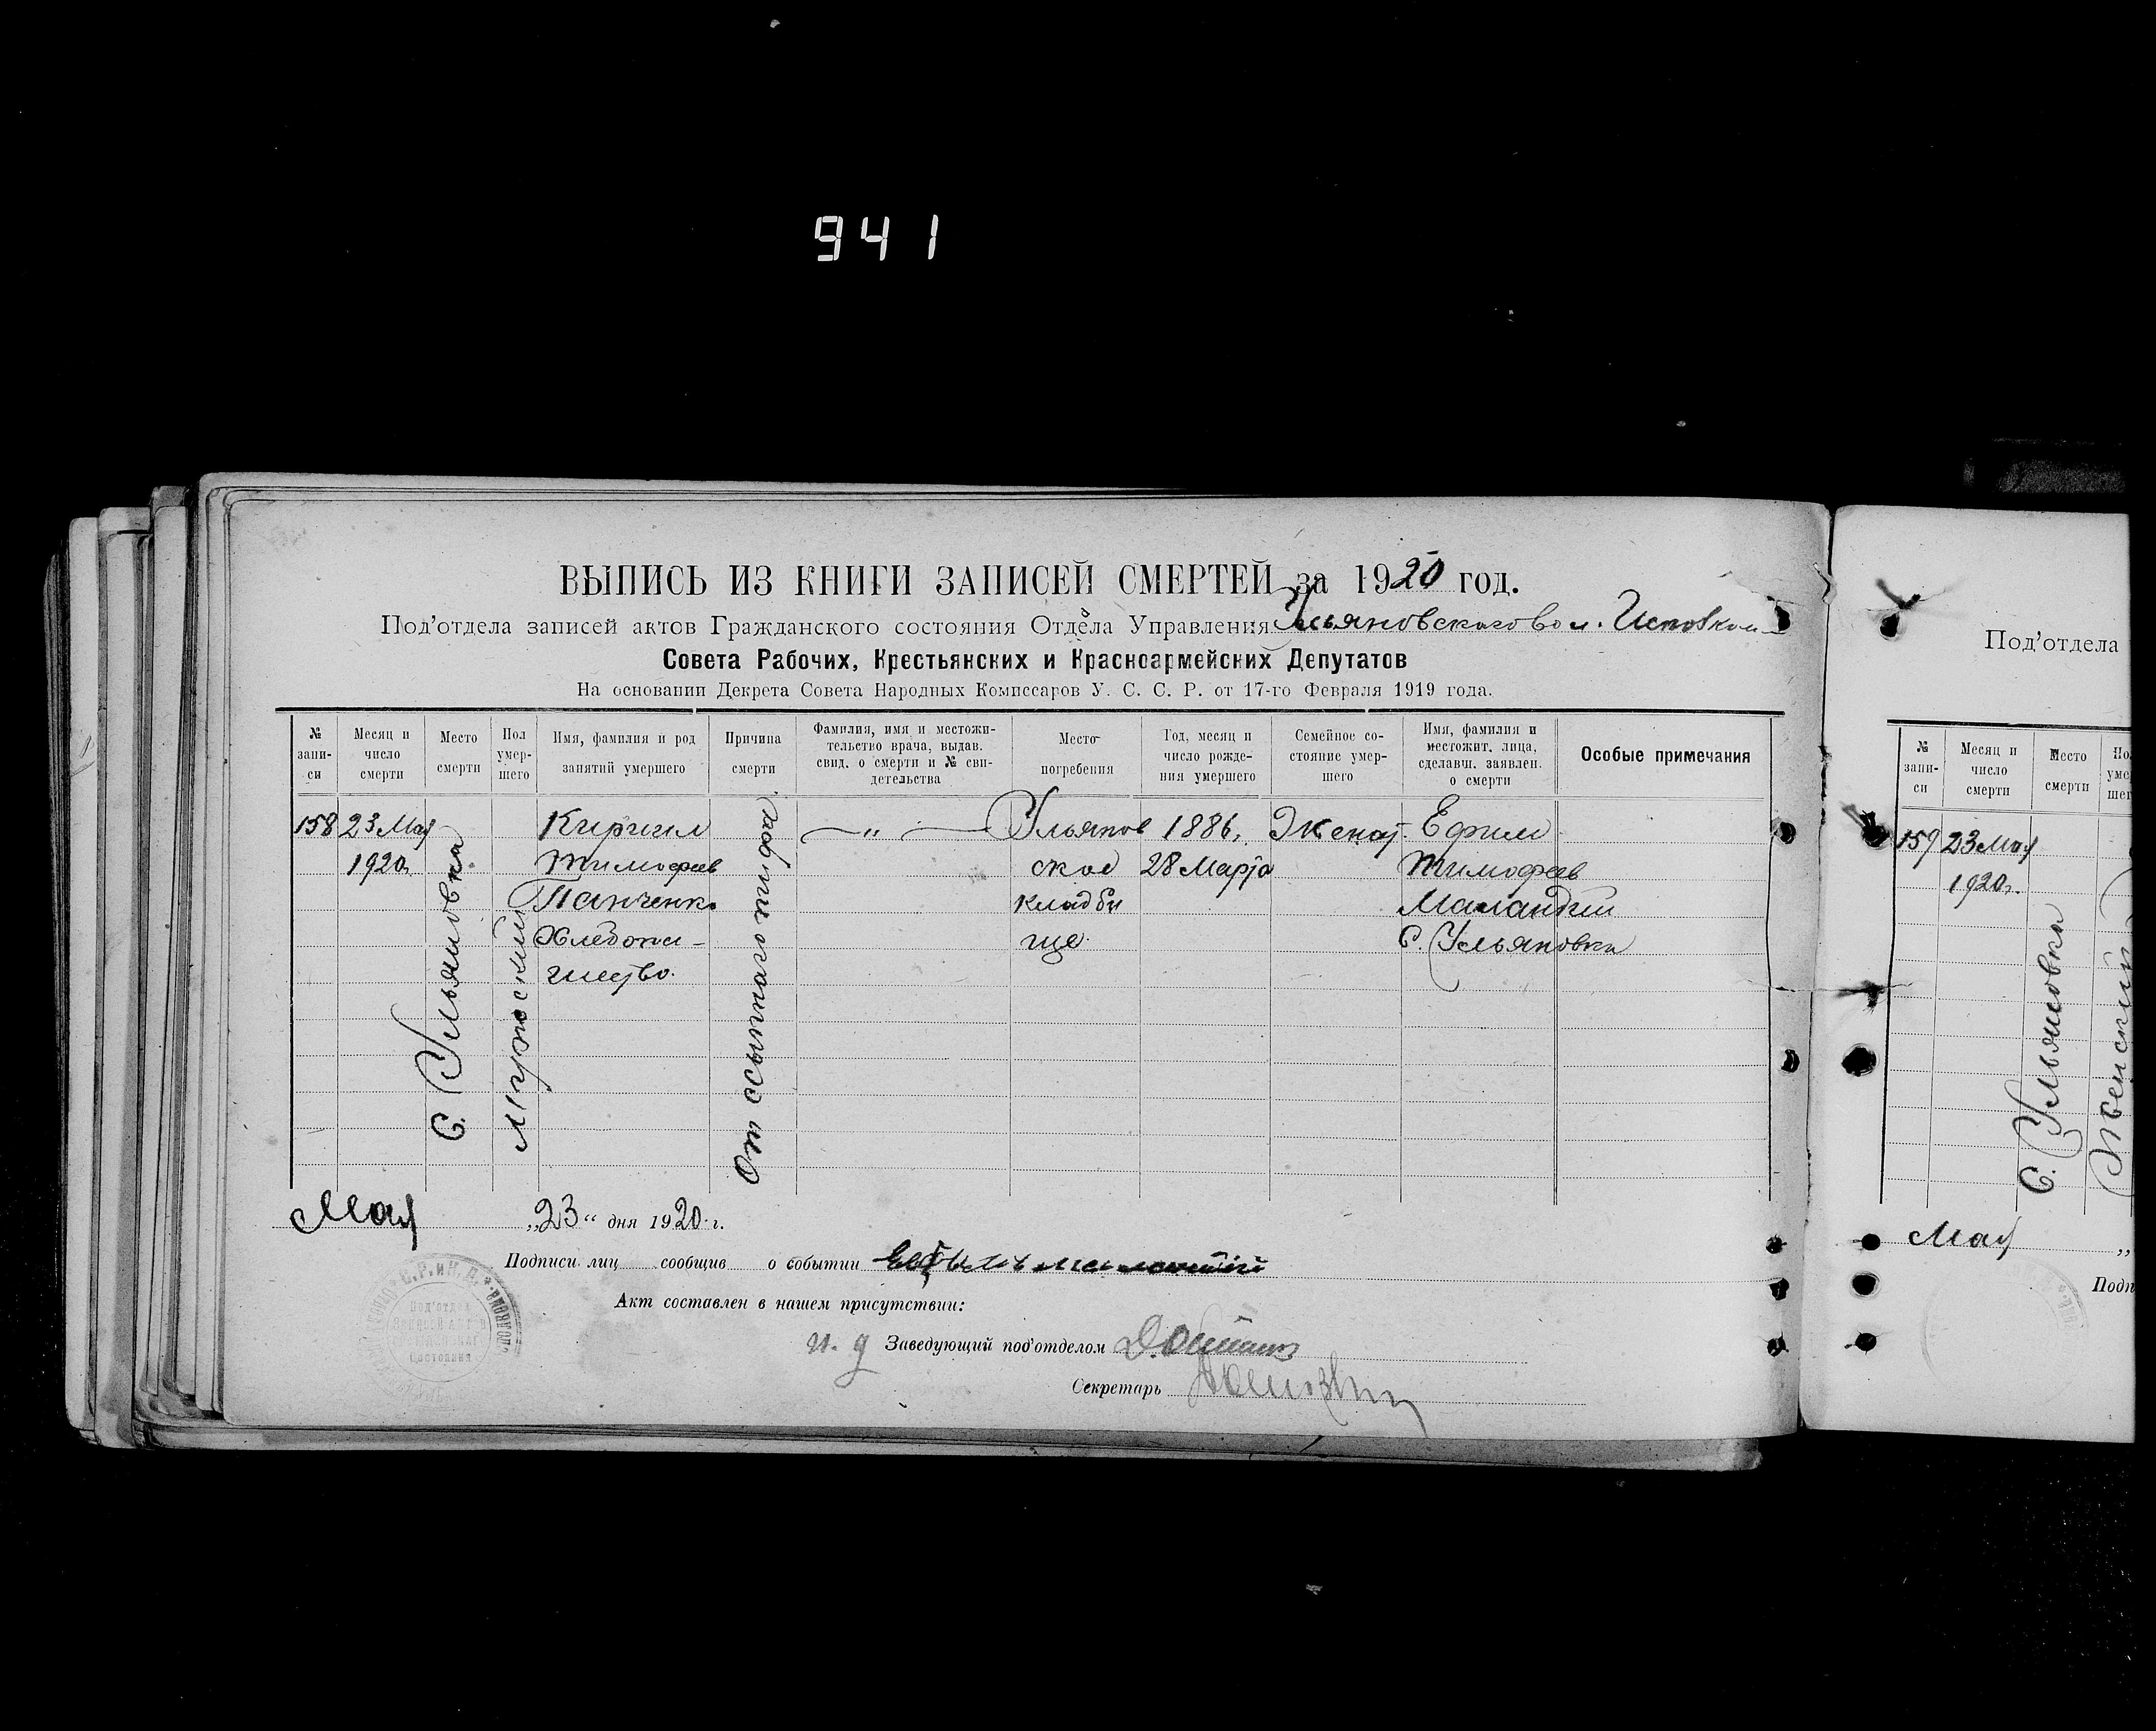 941
ВЫПИСЬ ИЗ КНИГИ ЗАПИСЕЙ СМЕРТЕЙ за 1920 год.
Под'отдела записей актов Гражданского состояния Отдела Управления Ульяновскаго вол. Исповком
Совета Рабочих, Крестьянских и Красноармейских Депутатов
На основании Декрета Совета Народных Комиссаров У. С. С. Р. от 17-го Февраля 1919 года.
№ записи
Месяц и число смерти
Место смерти
Пол умершего
Имя, фамилия и род занятий умершего
Причина смерти
Фамилия, имя и местожительство врача, выдав. свид. о смерти и № свидетельства
Место погребения
Год, месяц и число рождения умершего
Семейное состояние умершего
Имя, фамилия и местожит. лица, сделавш. заявлен. о смерти
Особые примечания
158
23 Мая
1920.
С. Ульяновка
Мужоский
Кирил
Тимофеев
Панченко
Хлебопа-
шество.
От сыпного тифа
— " —
Ульянов
ское
кладби
ще.
1886.
28 Марта
Женат.
Ефим
Тимофеев
С. Ульяновка
Мая „23“ дня 1920 г.
Подписи лиц сообщив о событии
Акт составлен в нашем присутствии:
и. д Заведующий под'отделом
Секретарь
Под'отдела
№ записи
Месяц и число смерти
Место смерти
159
23 Мая
1920.
С. Ульяновка
Женский
Мая „